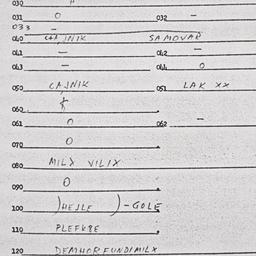 030
031 0 032 –
033 –
040 ČAJNIK SAMOVAR
041 – 042 –
043 – 044 0
050 CAJNIK 051 LAK XX
060
061 0 062 –
070 0
080 MILX VILIX
090 0
100 )HEJLE )-GOLE
110
120